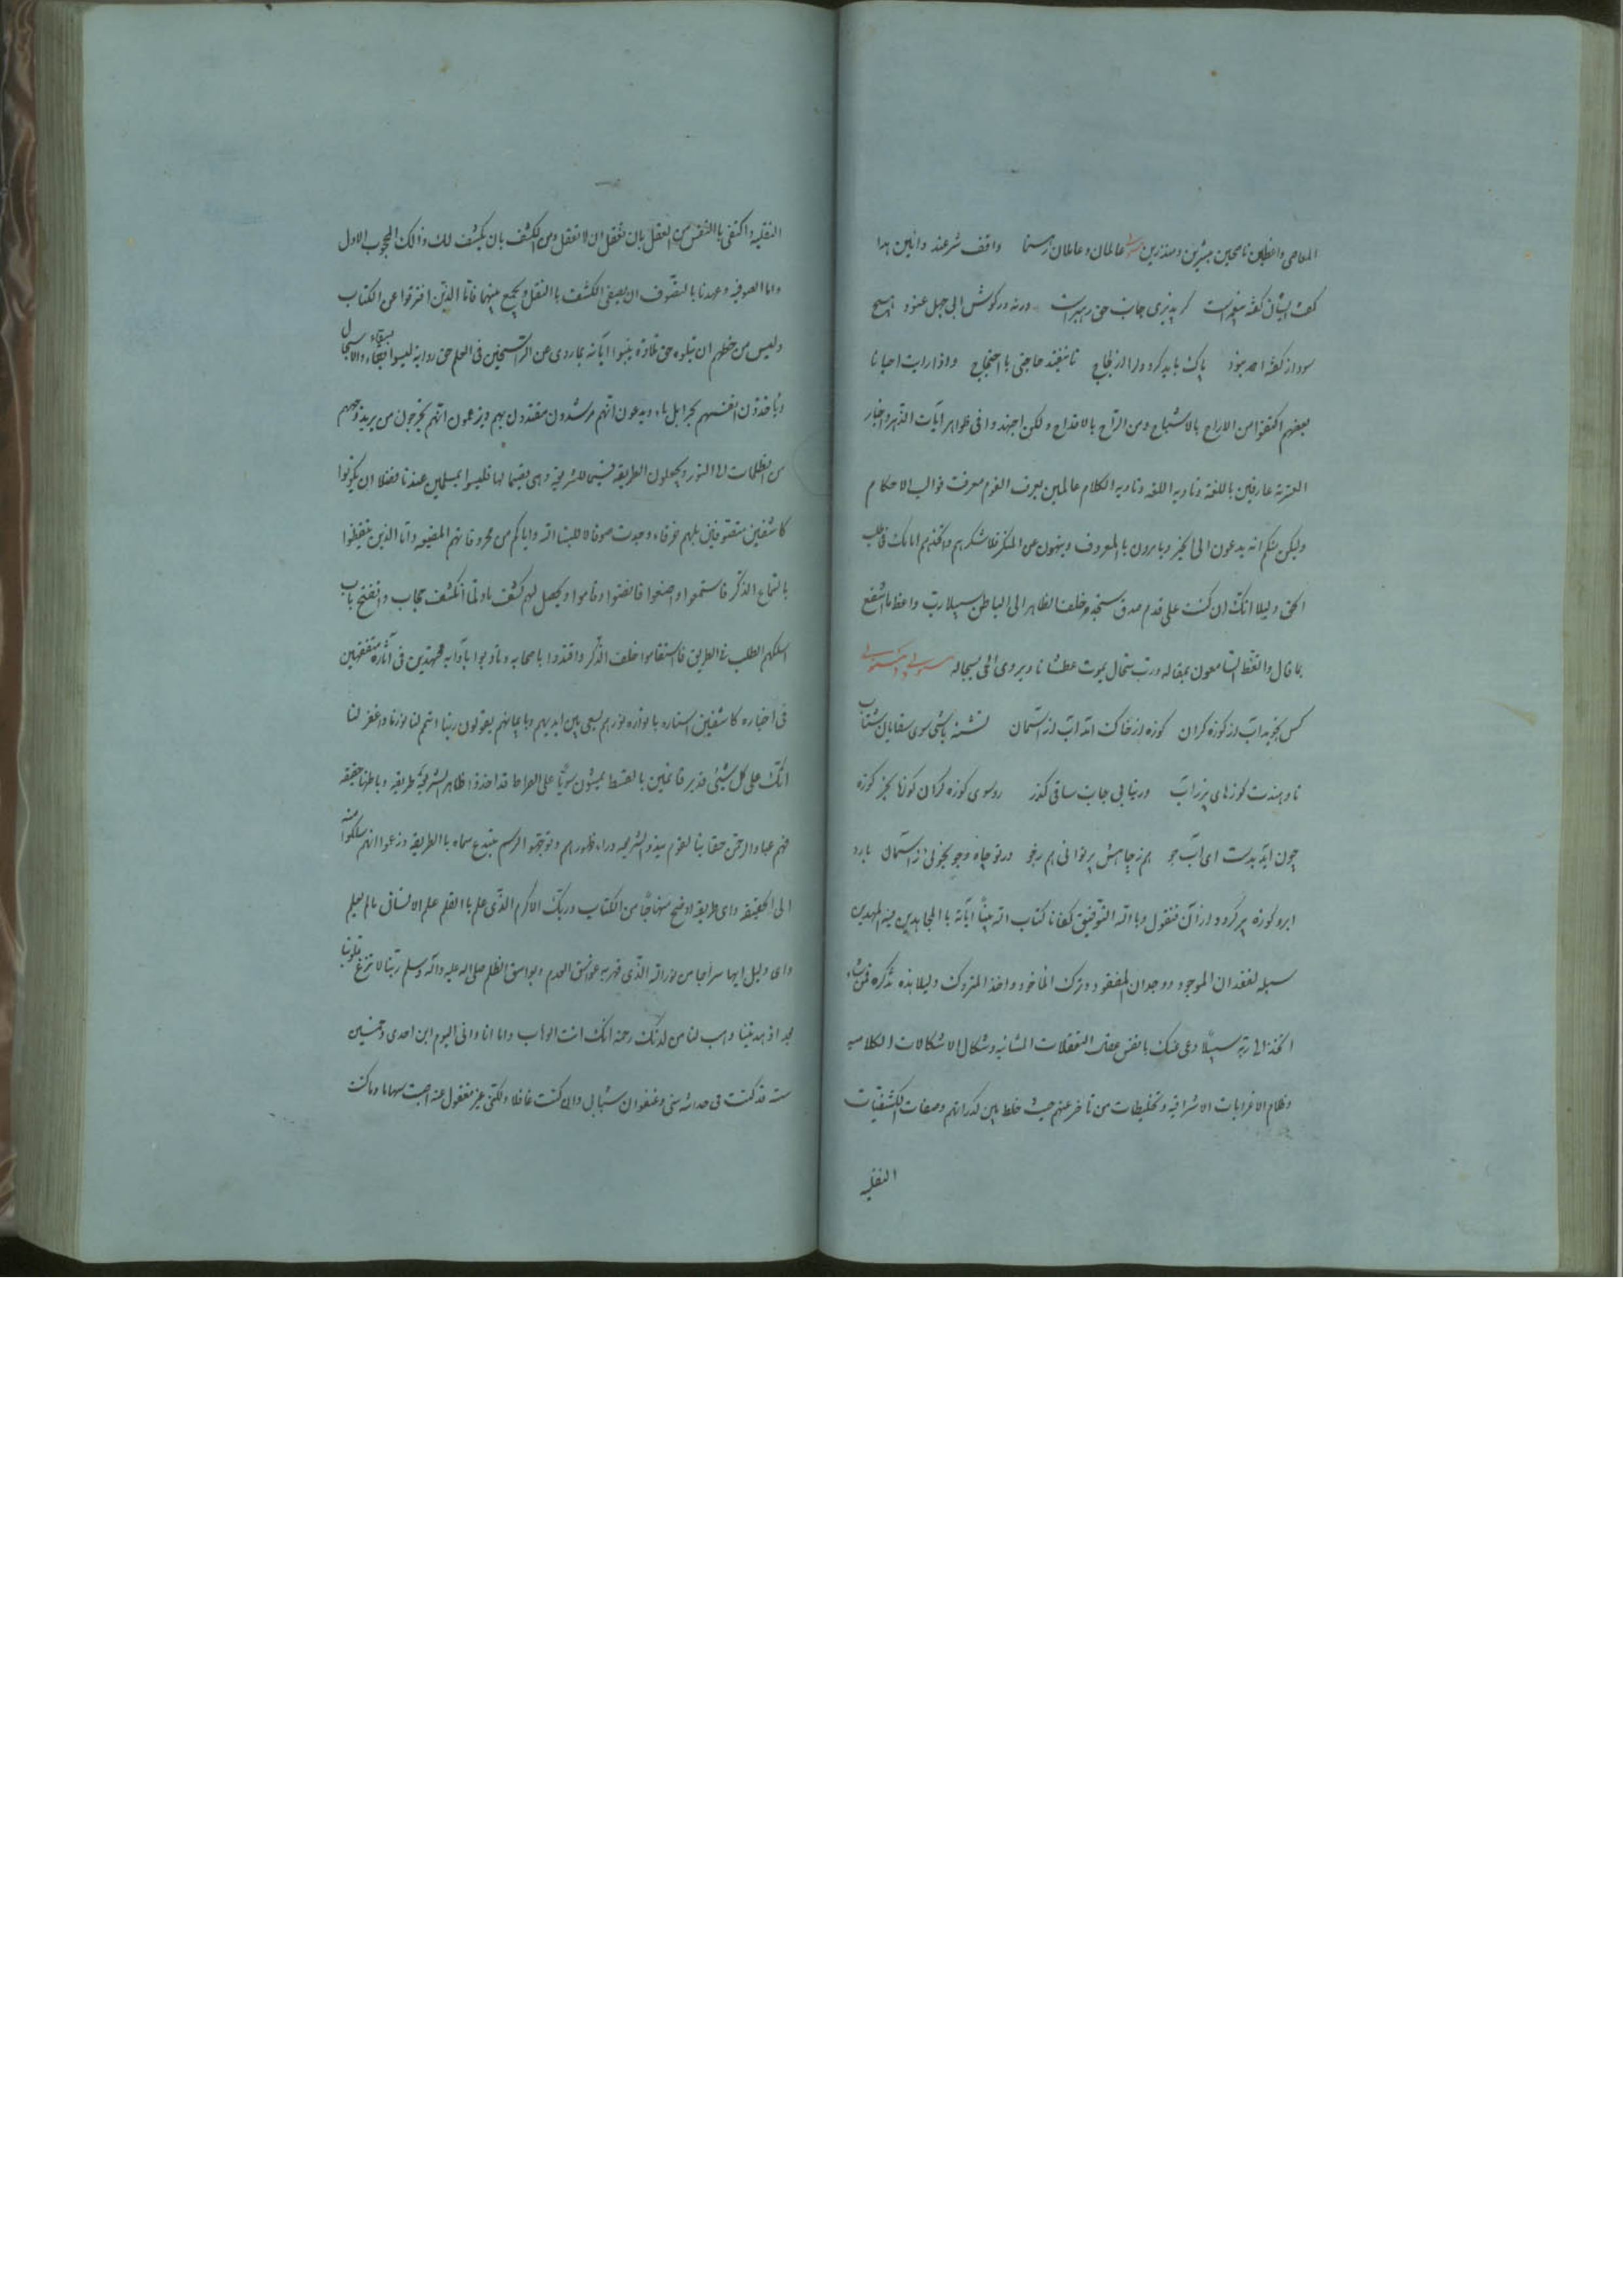 المعاصی واعظین ناصحین مبشرین و منذرین عالمان و عاملان رهنما واقف شرعند و آئین هدا
گفت ایشان گفته پیغمبر است گر پذیری جانب حق رهبر است ورنه در گوش ابی جهل عنود هیچ
سود از گفته احمد نبود پاک باید کرد دل را از لجاج تا نیفتد حاجتی با احتجاج و اذا رایت احیانا
بعضهم اکتفوا من الارواح بالاشباح و من الراح بالاقداح و لکن اجتهدوا فی ظواهر آیات الله و اخبار
العترة عارفین باللغة و تادیة اللغة و تادیة الکلام عالمین بعرف القوم معرفت قوالب الاحکام
ولیکن منکم امة یدعون الی الخیر و یامرون بالمعروف و ینهون عن المنکر فاشکرهم و اتخذهم امامک فی طلب
الحق دلیلا انک ان کنت علی قدم صدق ستجد خلف الظاهر الی الباطن سبیلا رب واعظ ما اتعظ
بما قال و اتعظ السامعون بمقاله و رب سجال یموت عطشانا و یروی الحی بسجاله
کس نجوید آب از کوزه کران کوزه از خاکست آمد آب از آسمان تشنه باشی سوی سقایان شتاب
تا دهندت کوزهای پر ز آب ور نیابی جانب ساقی گذر رو سوی کوزه گران کوزها بخر کوزه
چون آید بدست ای آب جو هم ز چاهش پر توانی هم ز جو ور تو چاه و جو بجوئی ز آسمان بارد
ابر و کوزه پر گردد از آن فنقول و بالله التوفیق کفانا کتاب الله مبینا آیاته بالمجاهدین فیه المهدین
سبله لفقدان الموجود و وجدان المفقود و ترک المأخوذ و اخذ المتروک دلیلا هذه تذکرة فمن شاء
اتخذ الی ربه سبیلا و دعی عنک یا نفس عقد التعقلات المشائیة و شکال الاشکالات الکلامیة
و ظلام الاغرابات الاشراقیه و تخلیطات من تاخر عنهم حیث خلط بین کدراتهم و صفات الکشفیات
النقلیه
النقلیه و اکتفی یا النفس من العقل بان تعقل ان لا تعقل و من الکشف بان یکشف لک و ذالک المحجوب الاول
و اما الصوفیه و عهدنا بالتصوف ان یصفی الکشف بالنقل و یجمع بینهما فاما الذین افترقوا عن الکتاب
ولیس من حظهم ان تتلوه حق تلاوة یتبوا آیاته بما روی عن الراسخین فی العلم حق روایة لیسوا بسقاء و لا سجال
و یاخذون انفسهم بجرابل ماء و یدعون انهم مرشدون مقتدون بهم و یزعمون انهم یخرجون من یرید وجههم
من الظلمات الی النور و یجعلون الطریقة قسیما للشریعة و هی قسما لها فلیسوا بمسلمین عندنا فضلا ان یکونوا
کاشفین متصوفین بل هم خرقاء وجدت صوفا لا لبسنا الله و ایاکم من محروقاتهم المضیعه و اما الذین یتیقظوا
بالسماع الذکر فاستمعوا و اصغوا فانصتوا و قاموا و یحصل لهم کشف ما و لما انکشف حجاب و انفتح باب
اسلکهم الطلب فی الطریق فاستقاموا خلف الذکر و اقتدوا باصحابه و تادبوا بآدابه مجتهدین فی آثاره متفقهین
فی اخباره کاشفین استاره بانواره نورهم یسعی بین ایدیهم و بایمانهم یقولون ربنا اتمم لنا نورنا و اغفر لنا
انک علی کل شیئی قدیر قائمین بالقسط یمشون سویا علی الصراط قد اخذوا ظاهر الشریعة طریقه و باطنها حقیقه
فهم عباد الرحمن حقا بینا لقوم نبذوا الشریعه وراء ظهورهم و توجهوا الرسم مبتدع سماه بالطریقه و زعموا انهم سلکوا منه
الی الحقیقه و ای طریقه اوضح منهاجا من الکتاب و ربک الاکرم الذی علم بالقلم علم الانسان ما لم یعلم
و ای دلیل ابها سراجا من نور الله الذی قهر به غواسق العدم و بواسق الظلم صلی الله علیه و آله و سلم ربنا لا تزغ قلوبنا
بعد اذ هدیتنا و هب لنا من لدنک رحمة انک انت الوهاب و اما انا و انی الیوم ابن احدی و خمسین
سنه قد کنت فی حداثة سنی و عنفوان شبابی و ان کنت غافلا و لکنی غیر مغفول عنه اجبت سهاما و ما کنت